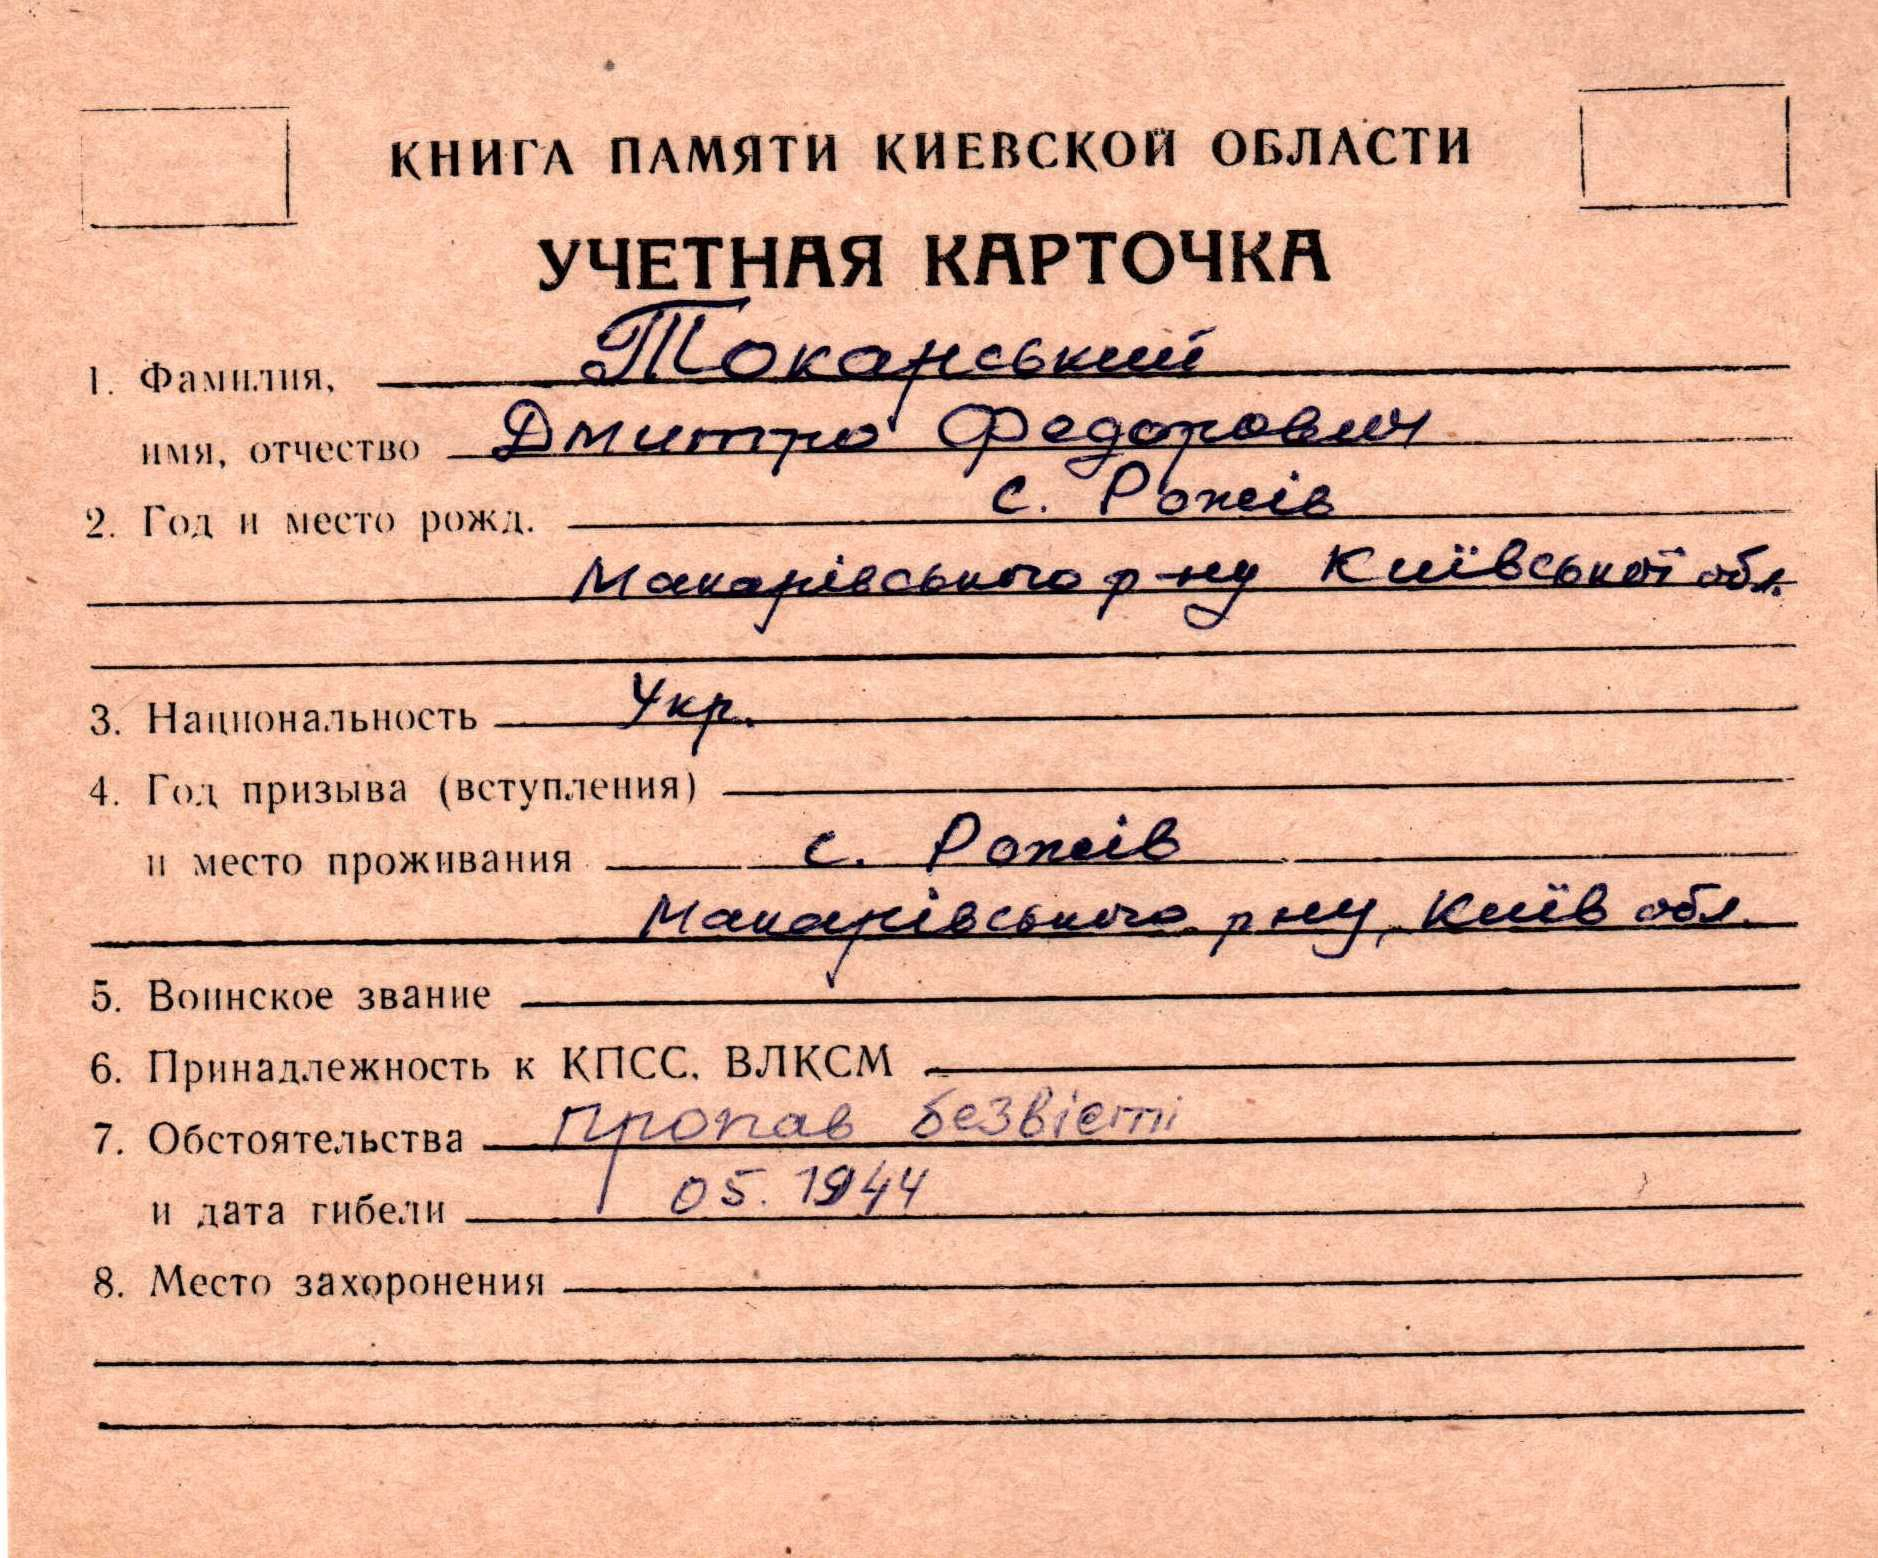 КНИГА ПАМЯТИ КИЕВСКОЙ ОБЛАСТИ
УЧЕТНАЯ КАРТОЧКА
1. Фамилия, Токарський
имя, отчество Дмитро Федорович
2. Год и место рожд. с. Рожів
Макарівського р-ну Київської обл.
3. Национальность Укр.
4. Год призыва (вступления)
и место проживания с. Рожів
Макарівського р-ну, Київ обл.
5. Воинское звание
6. Принадлежность к КПСС, ВЛКСМ
7. Обстоятельства пропав безвісті
и дата гибели 05.1944
8. Место захоронения